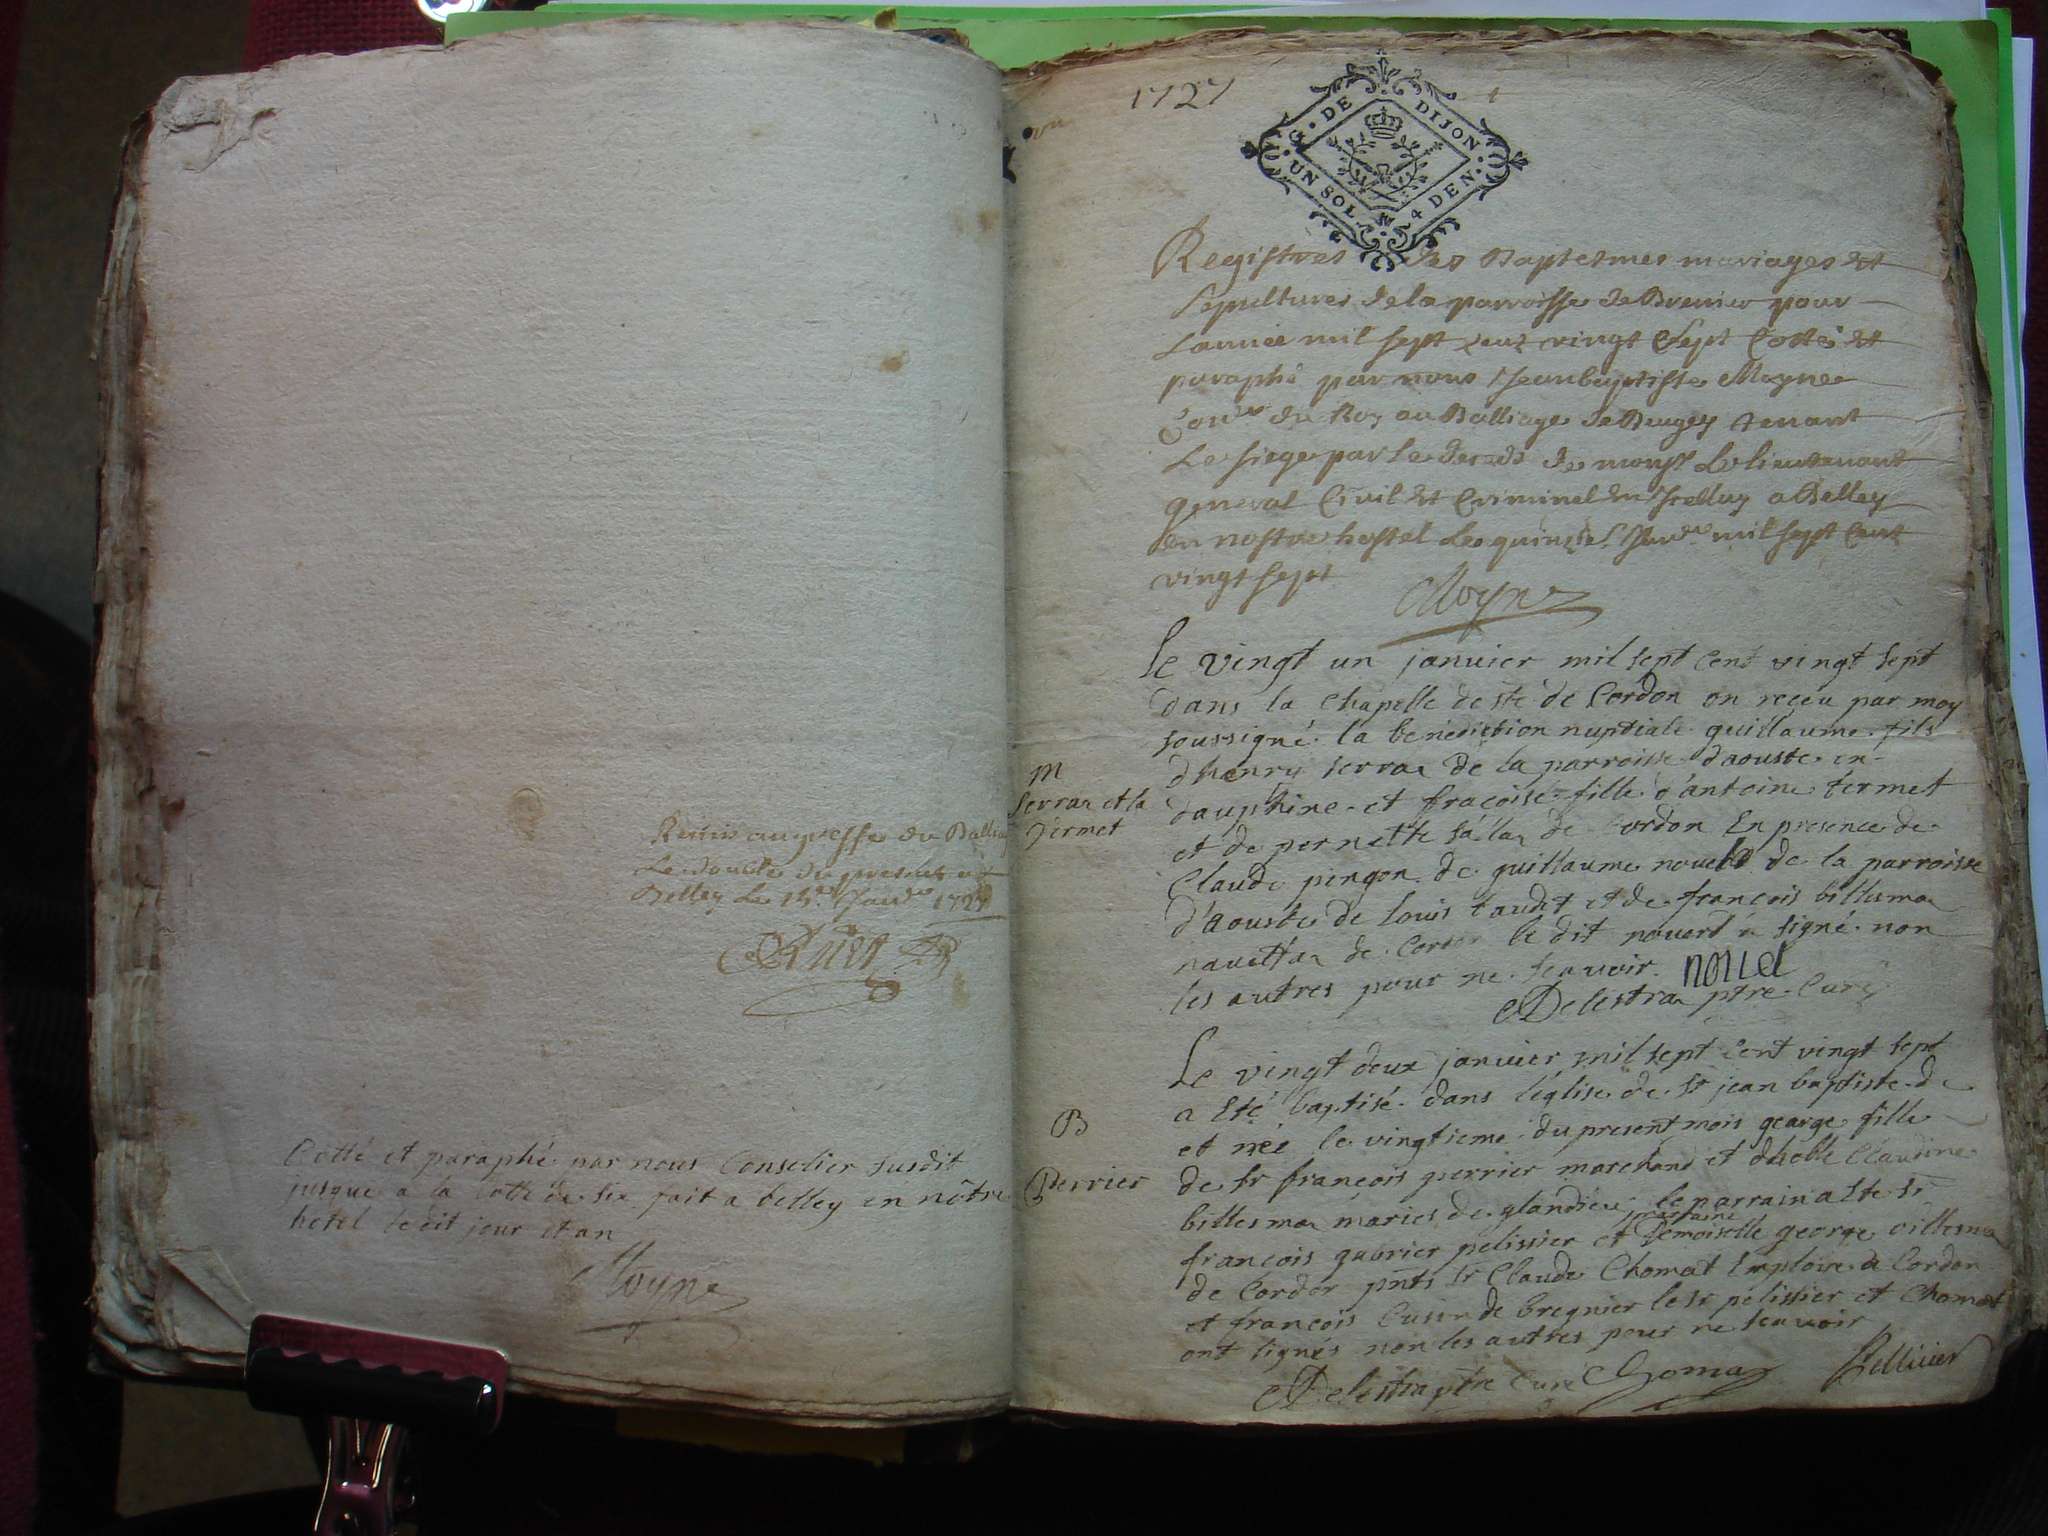 Remis au greffe du Ballia
Le double du present
Belley Le 15e Janvr 1727
Cotté et paraphé par nous Conselier susdit
jusque a la cotte de six fait a belley en nôtre
hotel ledit jour et an
Moyne
1727
G. DE DIJON
UN SOL 4 DEN.
Registres des Baptesmes mariages et
sepultures de la parroisse de Brenier pour
Lannee mil sept cent vingt sept Cotté et
paraphé par nous Jean baptiste Moyne
Coner du Roy au Balliage de Beugey tenant
Le siege par le deceds de monsr Le lieutenant
general Civil et Criminel en Icelluy a Belley
en nostre hostel Le quinze Janvr mil sept cent
vingt sept
Moyne
Le vingt un janvier mil sept cent vingt sept
dans la chapelle de ste de Cordon on reçeu par moy
soussigné la benediction nuptiale guillaume fils
M
dhenry serraz de la parroisse daouste en
Serraz et la
dauphine et fraçoise fille d'antoine termet
Termet
et de pernette de Cordon En presence de
Claude pingon de guillaume de la parroisse
d'aouste de louis et de françois billemaz
de Cordon le dit a signé non
les autres pour ne scavoir
Delestraz ptre Curé
Le vingt deux janvier mil sept cent vingt sept
a Eté baptisé dans l'eglise de st jean baptiste de
B
et née le vingtieme du present mois george fille
Perrier
de sr françois perrier marchand et dhoble Claudine
billemaz mariés de glandieu le parrain a Este sr
françois gabriel pelissier et Demoiselle george billemaz
marraine
de Cordon pnts sr Claude Chomat Emploié a Cordon
et françois Cusin de bregnier le sr pelissier et Chomat
ont signés non les autres pour ne scavoir
Delestraz ptre Curé Chomat Pellicier